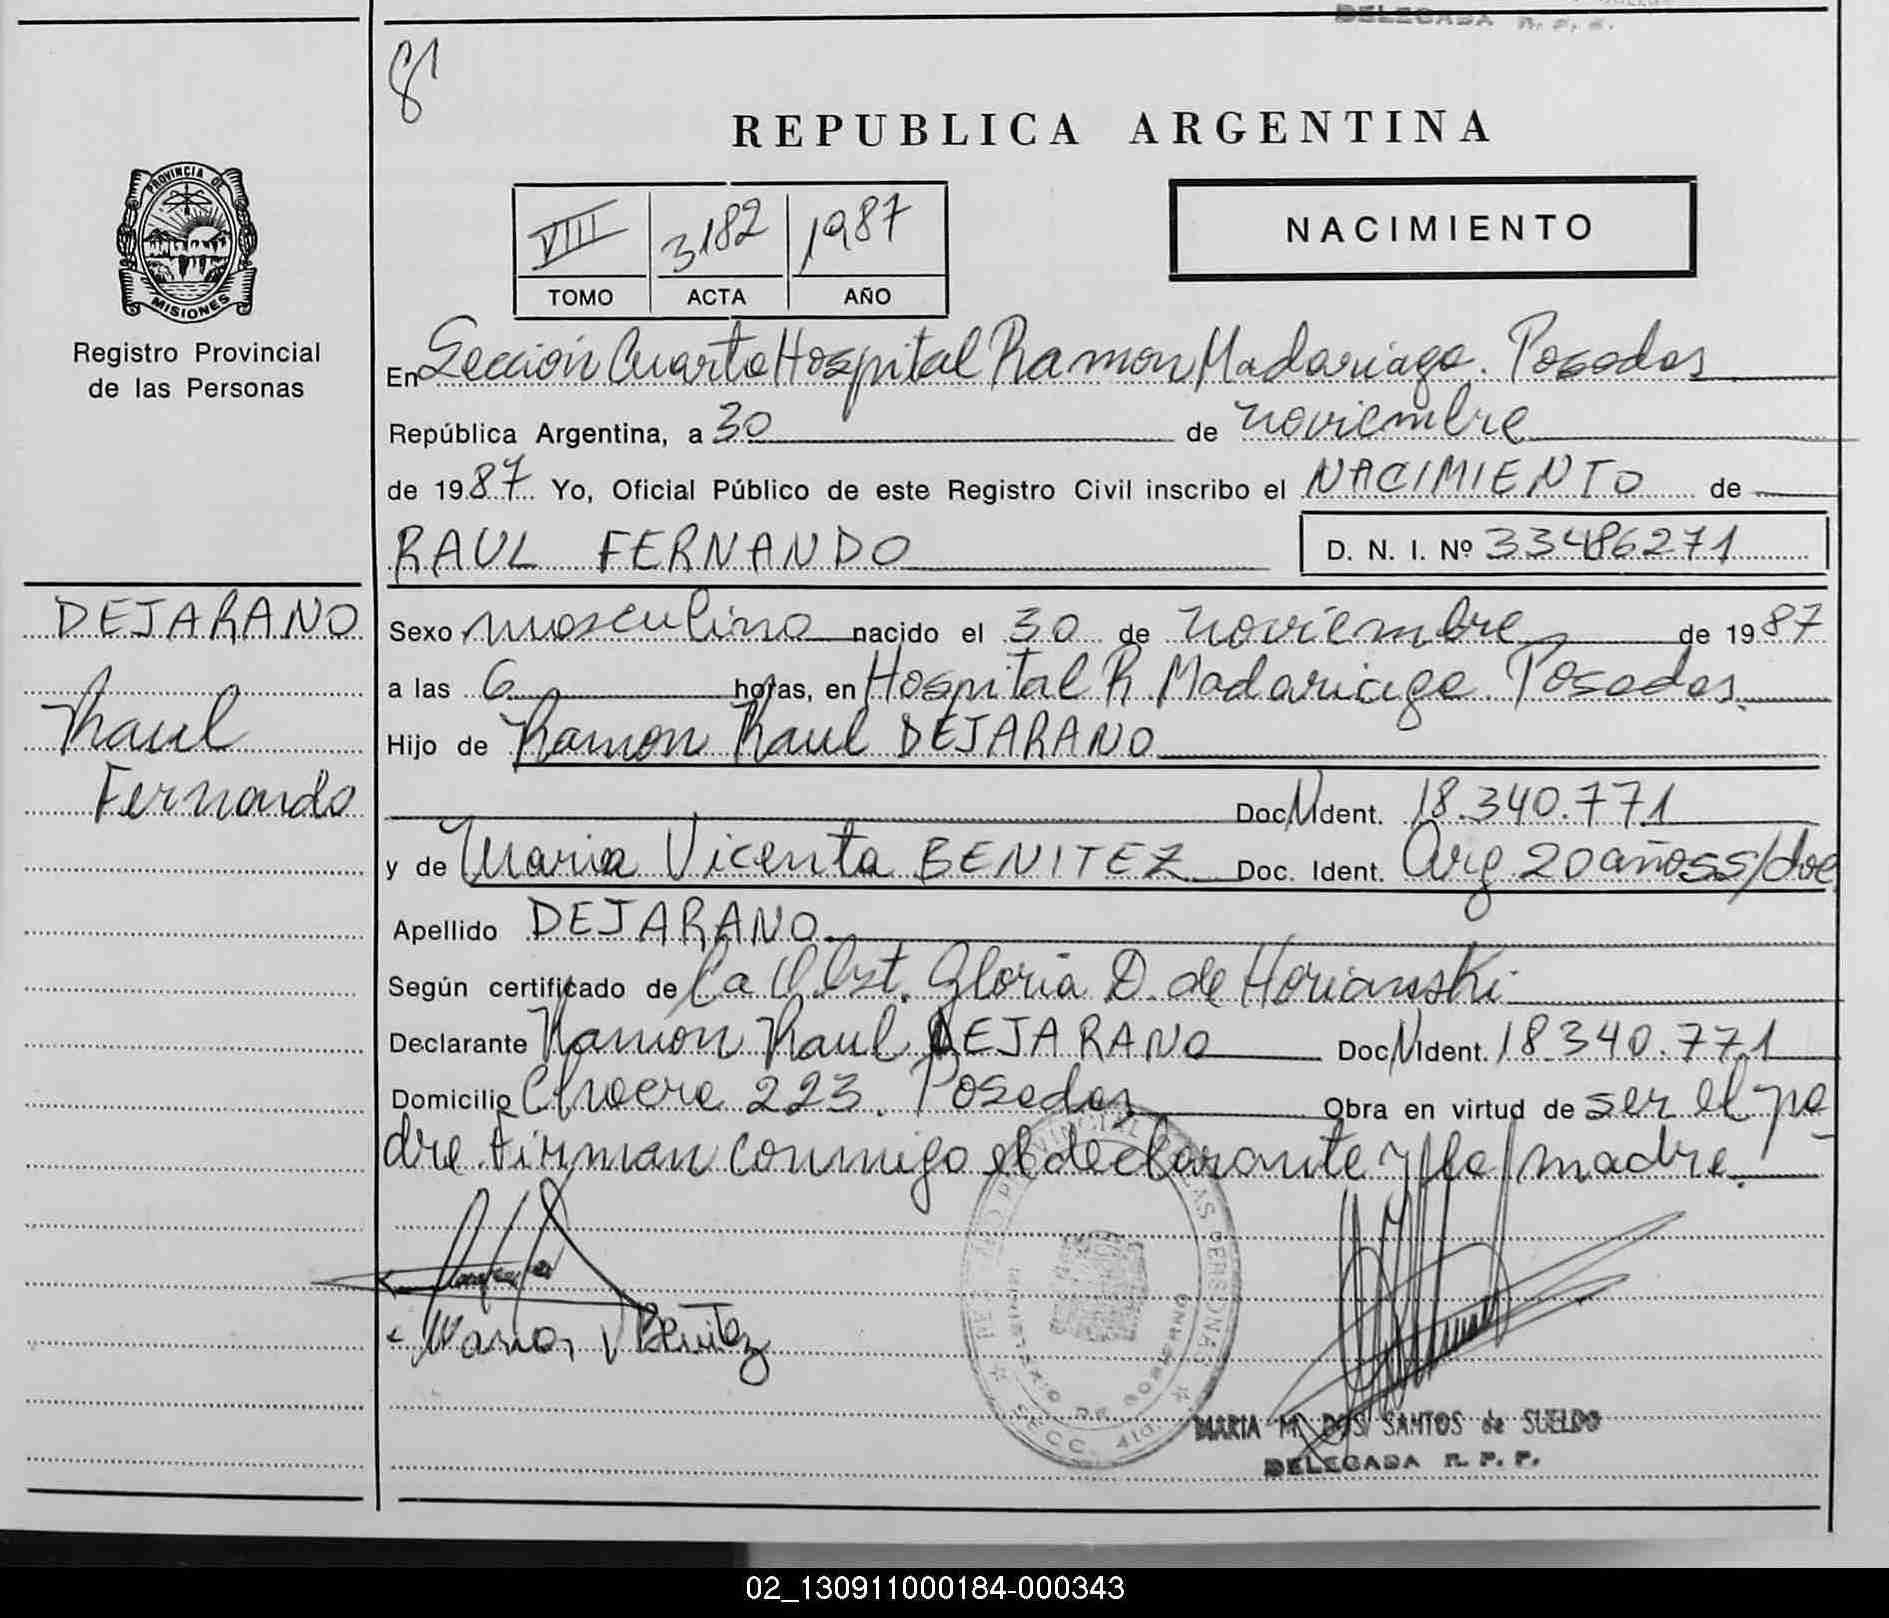 DELEGADA R. P. P.
81
REPUBLICA ARGENTINA
PROVINCIA DE
MISIONES
Registro Provincial
de las Personas
VIII 3182 1987
TOMO ACTA AÑO
NACIMIENTO
En Seccion Cuarta Hospital Ramon Madariaga. Posadas
República Argentina, a 30 de noviembre
de 1987 Yo, Oficial Público de este Registro Civil inscribo el NACIMIENTO de
RAUL FERNANDO D. N. I. Nº 33486271
DEJARANO
Raul
Fernando
Sexo masculino nacido el 30 de noviembre de 1987
a las 6 horas, en Hospital R Madariaga. Posadas
Hijo de Ramon Raul DEJARANO
Doc N Ident. 18.340.771
y de Maria Vicenta BENITEZ Doc. Ident. Arg 20 años s/doc
Apellido DEJARANO
Según certificado de La Obst. Gloria D. de Horianski
Declarante Ramon Raul DEJARANO Doc N Ident. 18.340.771
Domicilio 223. Posadas Obra en virtud de ser el pa
dre. Firman conmigo el declarante y la madre.
Maria V Benitez
SECC. 4ta.
MARIA M. DOS SANTOS de SUELDO
DELEGADA R. P. P.
02_130911000184-000343